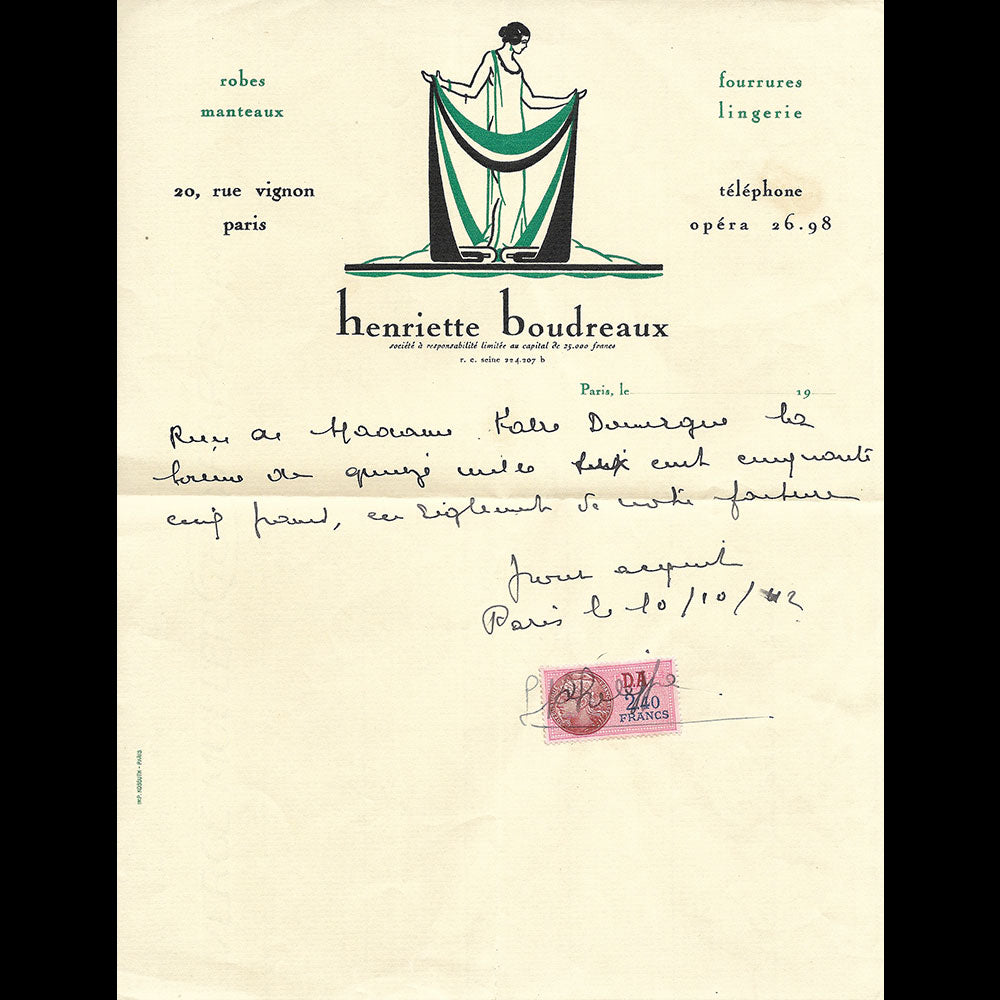 robes
manteaux
fourrures
lingerie
20, rue vignon
paris
téléphone
opéra 26.98
henriette boudreaux
société à responsabilité limitée au capital de 25.000 francs
r. c. seine 224.207 b
Paris, le 19
Reçu de Madame Dumergue la
somme de quinze mille cent cinquante
cinq francs, en règlement de notre facture
pour acquit
Paris le 10/10/42
D.A.
2,40
FRANCS
IMP. - PARIS